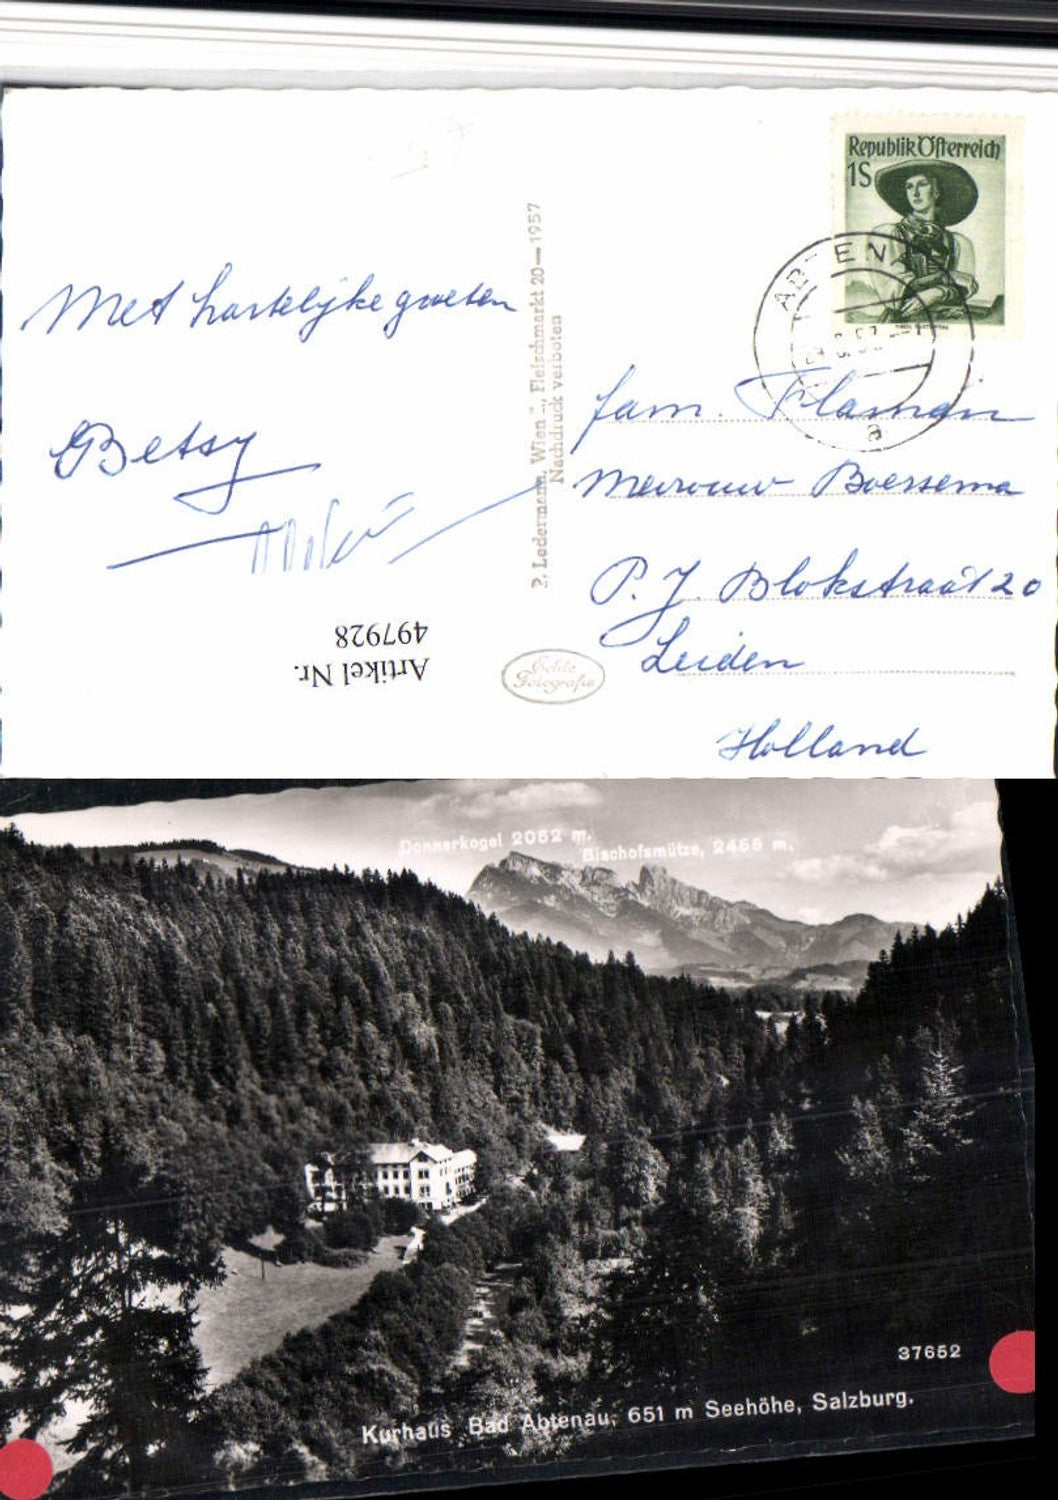 Republik Österreich
1S
ABTENAU
a
Met hartelijke groeten
Betsy
fam. Flaman
Mevrouw Boersema
P. J. Blokstraat 20
Leiden
Holland
P. Ledermann, Wien I., Fleischmarkt 20—1957
Nachdruck verboten
Echte
Fotografie
Artikel Nr.
497928
Donnerkogel 2052 m.
Bischofsmütze, 2455 m.
37652
Kurhaus Bad Abtenau, 651 m Seehöhe, Salzburg.